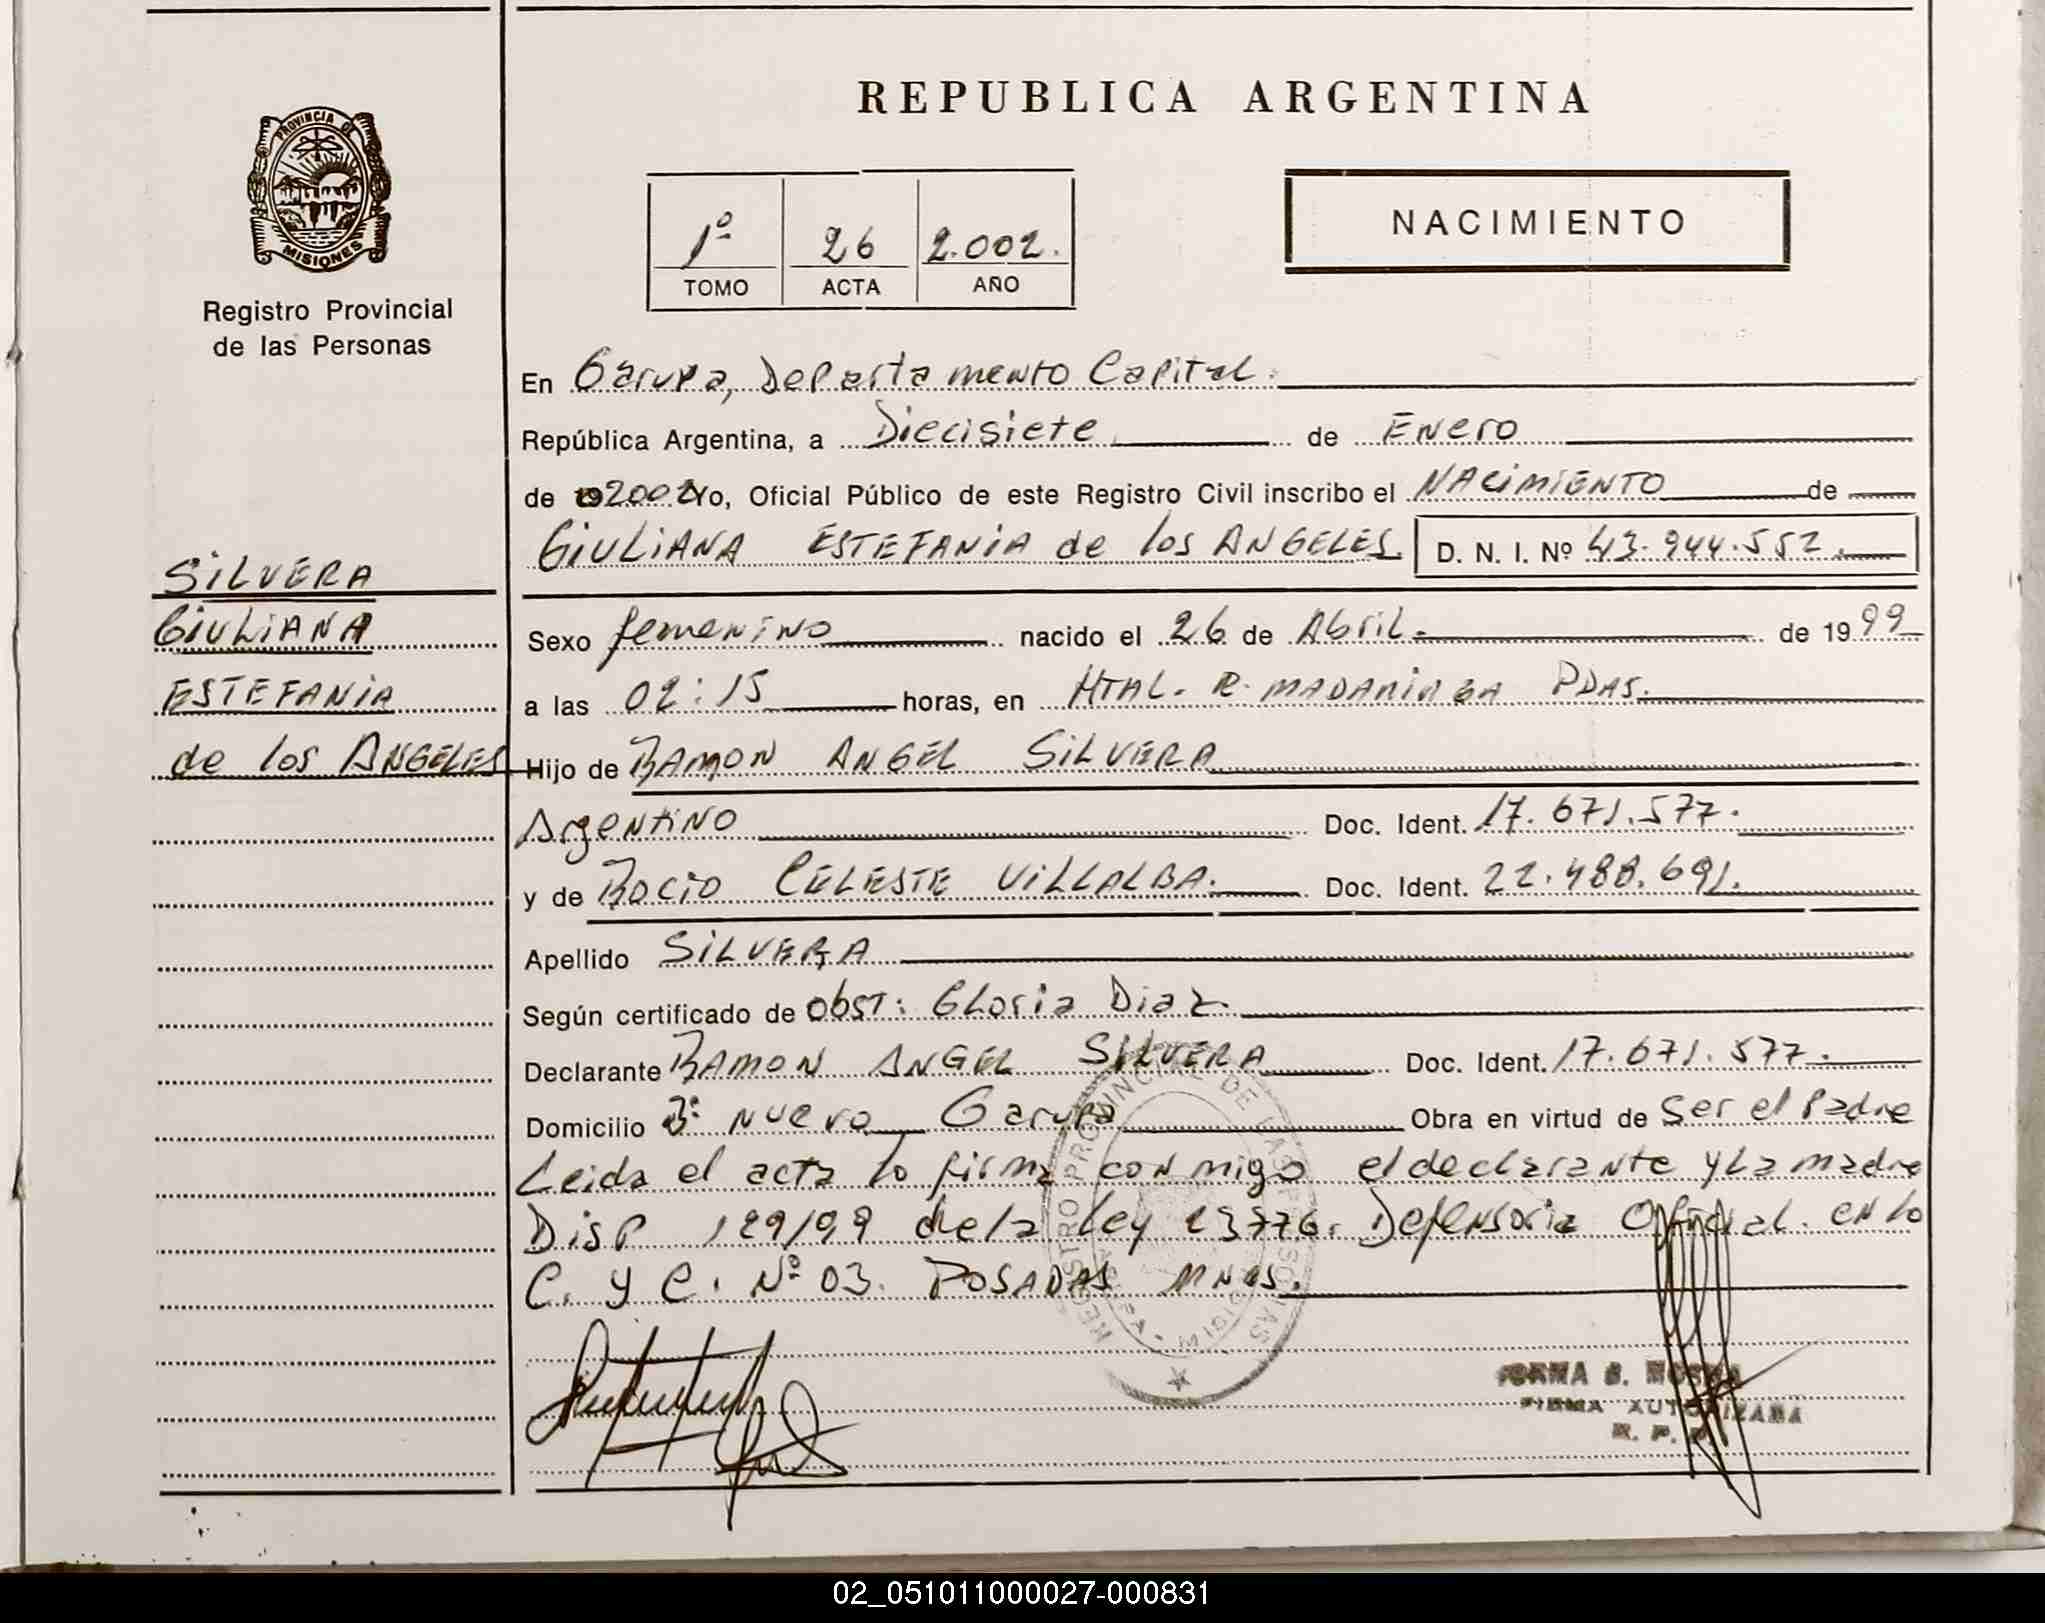 REPUBLICA ARGENTINA
PROVINCIA DE
MISIONES
Registro Provincial
de las Personas
1º 26 2.002.
TOMO ACTA AÑO
NACIMIENTO
En Garupa, Departamento Capital.
República Argentina, a Diecisiete de Enero
de 2002 Yo, Oficial Público de este Registro Civil inscribo el NACIMIENTO de
GIULIANA ESTEFANIA de los ANGELES D. N. I. Nº 43.944.552.
SILVERA
GIULIANA
ESTEFANIA
de los ANGELES
Sexo femenino nacido el 26 de Abril. de 1999
a las 02:15 horas, en HTAL. R. MADARIAGA PDAS.
Hijo de RAMON ANGEL SILVERA
Argentino Doc. Ident. 17.671.577.
y de ROCIO CELESTE VILLALBA. Doc. Ident. 22.488.691.
Apellido SILVERA
Según certificado de obst: Gloria Diaz.
Declarante RAMON ANGEL SILVERA Doc. Ident. 17.671.577.
Domicilio Bº Nuevo Garupa Obra en virtud de Ser el Padre
Leida el acta lo firma conmigo el declarante y La madre
Disp 129/99 de la Ley 23776. Defensoria Oficial en lo
C. y C. Nº 03. POSADAS MNES.
REGISTRO PROVINCIAL DE LAS PERSONAS
FIRMA AUTORIZADA
R. P. P.
02_051011000027-000831